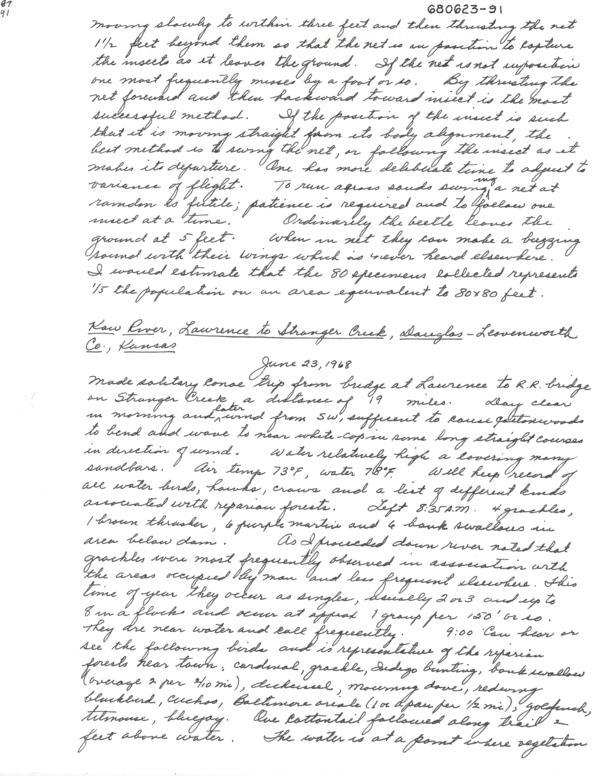 67
91
680623-91
moving slowly to within three feet and then thrusting the net
1 1/2 feet beyond them so that the net is in position to capture
the insects as it leaves the ground. If the net is not in position
one most frequently misses by a foot or so. By thrusting the
net forward and then backward toward insect is the most
successful method. If the position of the insect is such
that it is moving straight from its body alignment, the
best method is to swing the net, or following the insect as it
makes its departure. One has more deliberate time to adjust to
variance of flight. To run across sands swinging a net at
ramdon is futile; patience is required and to follow one
insect at a time. Ordinarily the beetle leaves the
ground at 5 feet. When in net they can make a buzzing
sound with their wings which is never heard elsewhere.
I would estimate that the 80 specimens collected represents
1/5 the population on an area equivalent to 80x80 feet.
Kaw River, Lawrence to Stranger Creek, Douglas-Leavenworth
Co., Kansas
June 23, 1968
Made solitary canoe trip from bridge at Lawrence to R.R. bridge
on Stranger Creek, a distance of 19 miles. Day clear
in morning and later wind from SW, sufficent to cause cottonwoods
to bend and wave to near white-cap in some long straight courses
in direction of wind. Water relatively high & covering many
sandbars. Air temp 73°F, water 78°F. Will keep record of
all water birds, hawks, crows and a list of different kinds
associated with reparian forests. Left 8:35 A.M. 4 grackles,
1 brown thrasher, 6 purple martin and 6 bank swallows in
area below dam. As I proceeded down river noted that
grackles were most frequently observed in association with
the areas occupied by man and less frequent elsewhere. This
time of year they occur as singles, usually 2 or 3 and up to
8 in a flock and occur at approx 1 group per 150' or so.
They are near water and call frequently. 9:00 Can hear or
see the following birds and is representative of the reparian
forests near town; cardinal, grackle, Indigo bunting, bank swallow
(average 2 per 2/10 mi), dickcissel, mourning dove, redwing
blackbird, cuckoo, Baltimore oriole (1 or a pair per 1/2 mi), goldfinch,
titmouse, bluejay. One cottontail followed along trail 2
feet above water. The water is at a point where vegetation